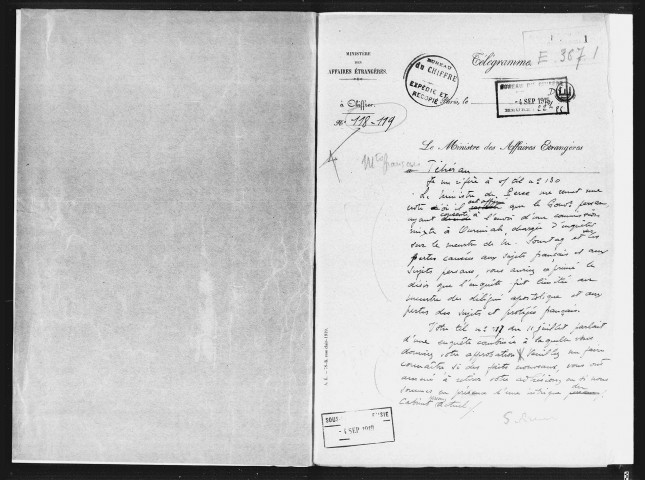 1
MINISTÈRE
DES
AFFAIRES ÉTRANGÈRES
BUREAU
du CHIFFRE
EXPÉDIÉ ET
RECOPIÉ
Télégramme
E 387.1
à Chiffrer.
N° 118-119
Paris, le
BUREAU DU
-4 SEP 1919
Le Ministre des Affaires Étrangères
à Téhéran
français
Je me réfère à v/ tél n° 180
Le ministre de Perse me remet une
note d'où il que le Gouvt persan,
ayant consenti à l'envoi d'une commission
mixte à Ourmiah, chargée d'enquêter
sur le meurtre de Mr. Sontag et les
pertes causées aux sujets français et aux
sujets persans, vous auriez exprimé le
désir que l'enquête fût limitée au
meurtre du délégué apostolique et aux
pertes des sujets et protégés français.
Votre tél n° du 11 juillet parlait
d'une enquête à laquelle vous
donniez votre approbation. Veuillez me faire
connaître si des faits nouveaux vous ont
amené à retirer votre adhésion ou si nous
sommes en présence d'une intrigue du
Cabinet actuel
-4 SEP 1919